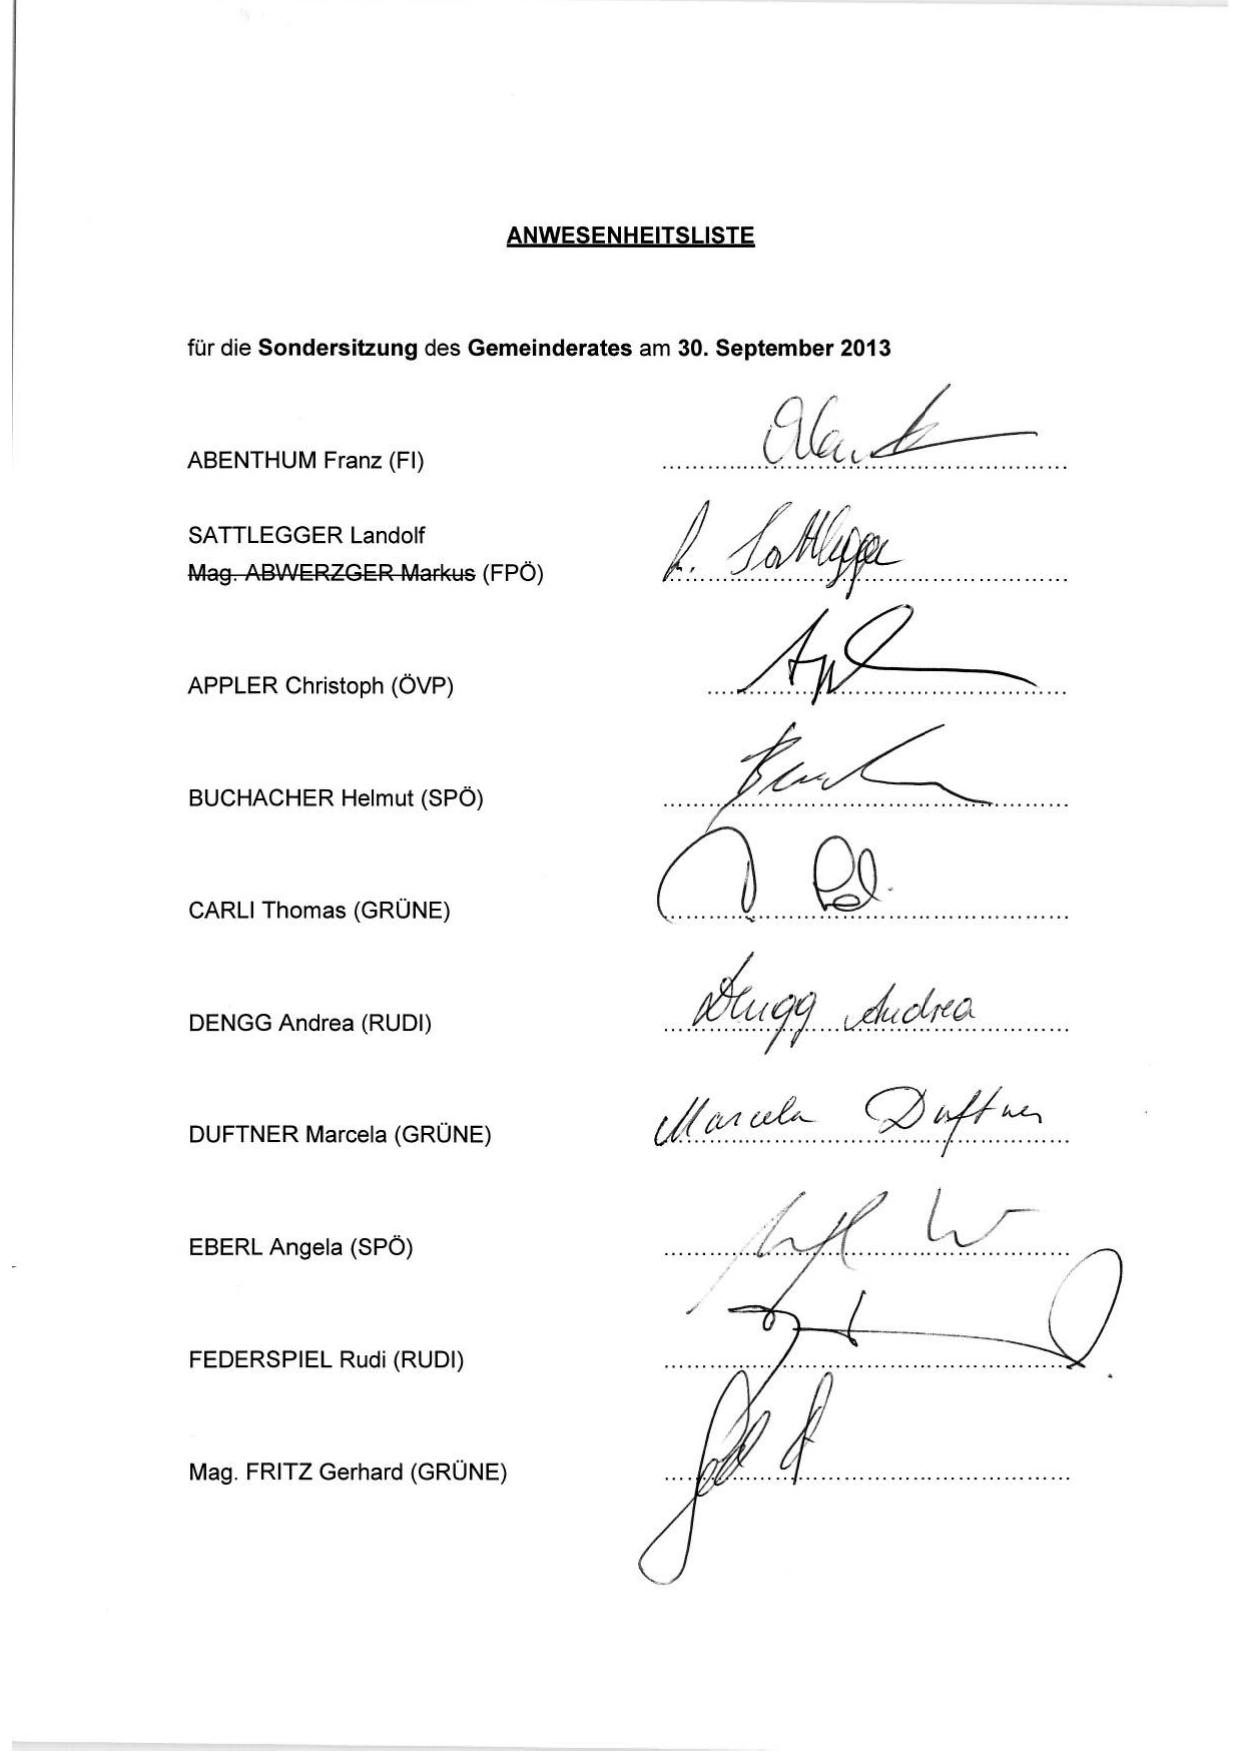 ANWESENHEITSLISTE
für die Sondersitzung des Gemeinderates am 30. September 2013
ABENTHUM Franz (FI)
SATTLEGGER Landolf
Mag. ABWERZGER Markus (FPÖ) L. Sattlegger
APPLER Christoph (ÖVP)
BUCHACHER Helmut (SPÖ)
CARLI Thomas (GRÜNE)
DENGG Andrea (RUDI) Dengg Andrea
DUFTNER Marcela (GRÜNE) Marcela Duftner
EBERL Angela (SPÖ)
FEDERSPIEL Rudi (RUDI)
Mag. FRITZ Gerhard (GRÜNE)